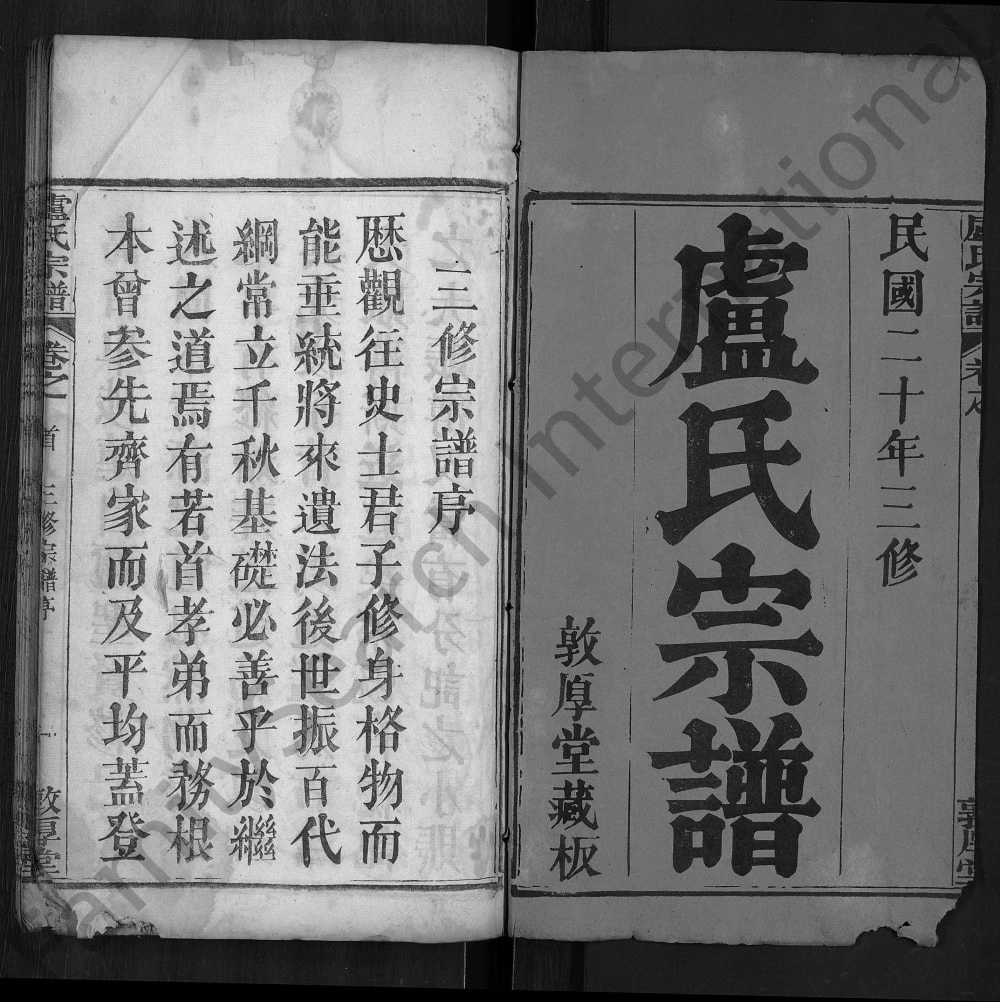 民國二十年三修
盧氏宗譜
敦厚堂藏板
三修宗譜序
歷觀往史士君子修身格物而
能垂統將來遺法後世振百代
綱常立千秋基礎必善乎於繼
述之道焉有若首孝弟而務根
本曾參先齊家而及平均蓋登
盧氏宗譜
卷之首
三修宗譜序
一
敦厚堂
FamilySearch International